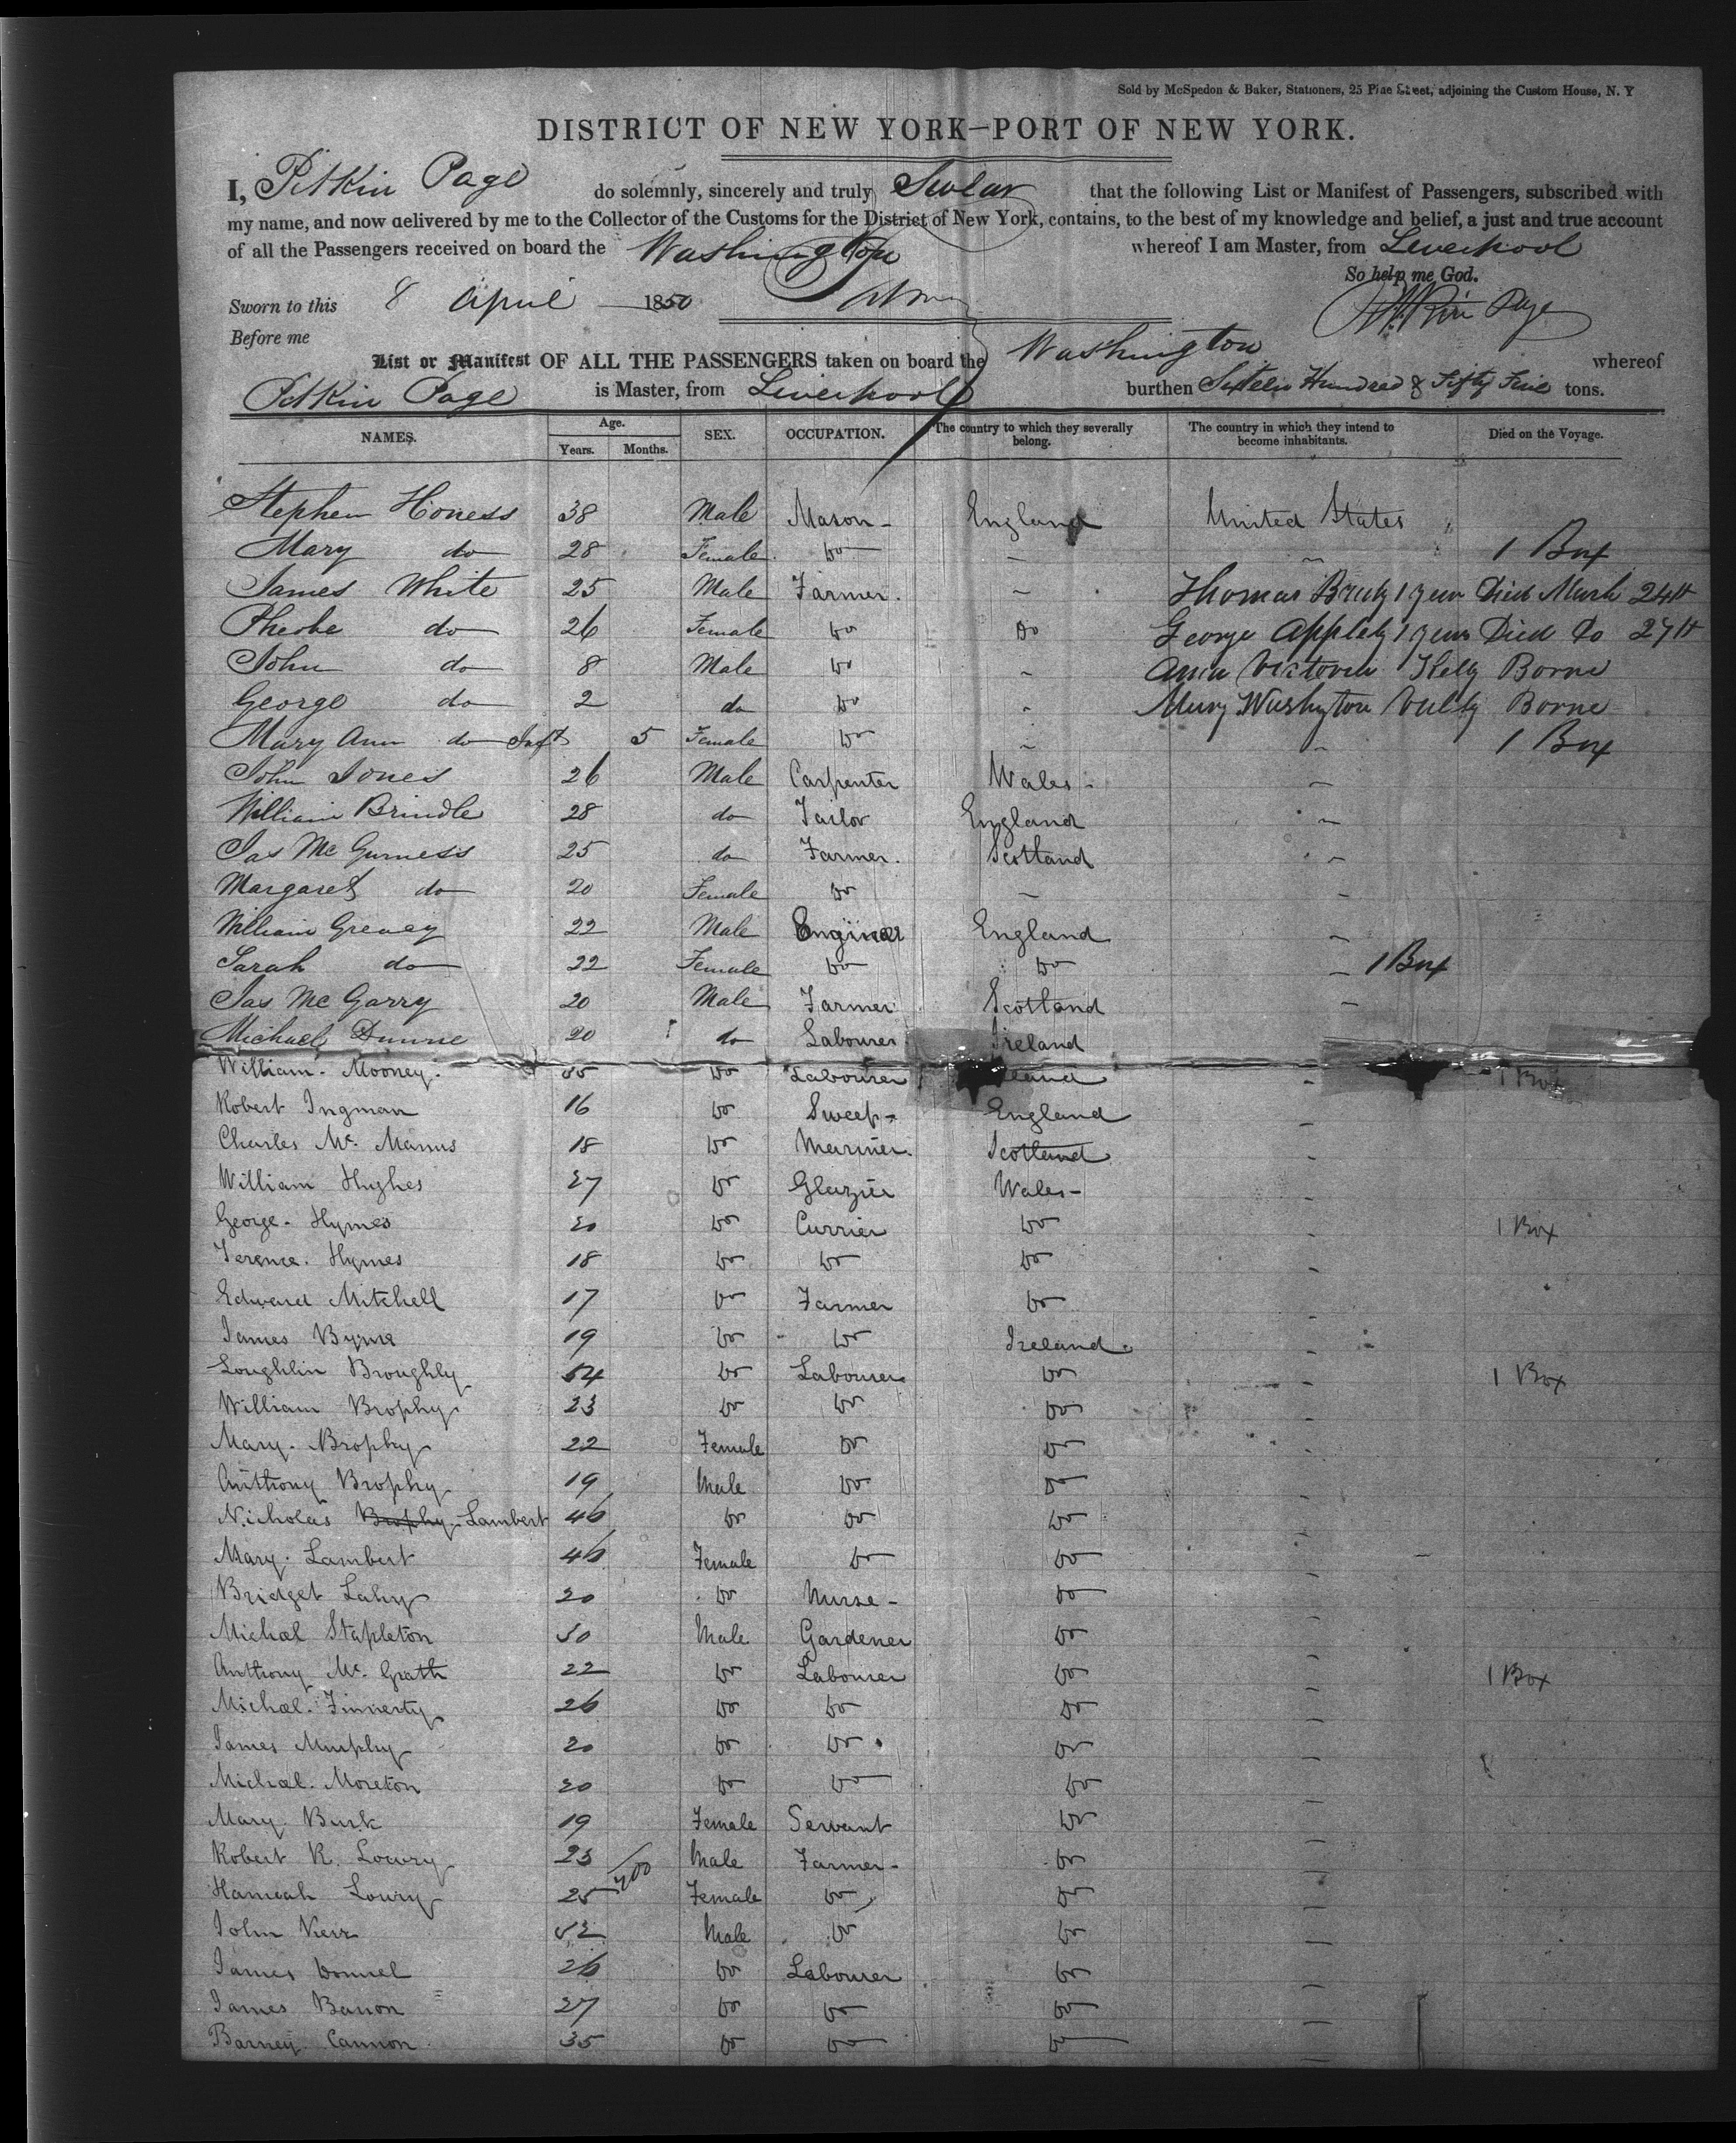 Sold by McSpedon & Baker, Stationers, 25 Pine Street, adjoining the Custom House, N. Y
DISTRICT OF NEW YORK—PORT OF NEW YORK.
I, Pitkin Page do solemnly, sincerely and truly Swear that the following List or Manifest of Passengers, subscribed with
my name, and now delivered by me to the Collector of the Customs for the District of New York, contains, to the best of my knowledge and belief, a just and true account
of all the Passengers received on board the Washington whereof I am Master, from Liverpool
So help me God.
Sworn to this 8 April 1850 Page
Before me
List or Manifest OF ALL THE PASSENGERS taken on board the Washington whereof
Pitkin Page is Master, from Liverpool burthen Sixteen Hundred & Fifty Five tons.
NAMES. Age. Years. Months. SEX. OCCUPATION. The country to which they severally belong. The country in which they intend to become inhabitants. Died on the Voyage.
Stephen Honess 38 Male Mason - England United States
Mary do 28 Female Do 1 Box
James White 25 Male Farmer. Thomas 1 year Died March 24th
Pheobe do 26 Female Do Do George Appleby 1 year Died Do 27th
John do 8 Male Do Victoria Kelly Borne
George do 2 do Do Mary Washington Borne
Mary Ann do Inft 5 Female Do 1 Box
John Jones 26 Male Carpenter Wales -
William Brindle 28 do Tailor England
Jas Mc Gurness 25 do Farmer. Scotland
Margaret do 20 Female Do
William Greaey 22 Male Engineer England
Sarah do 22 Female Do Do 1 Box
Jas Mc Garry 20 Male Farmer Scotland
Michael Dunne 20 do Labourer Ireland
William. Mooney. 35 Do Labourer 1 Box
Robert Ingman 16 Do Sweep - England
Charles Mc. Manus 18 Do Mariner. Scotland
William Hughes 27 Do Glazier Wales -
George. Hymes 20 Do Currier Do 1 Box
Terence. Hymes 18 Do Do Do
Edward Mitchell 17 Do Farmer Do
James Byrne 19 Do Do Ireland.
Loughlin Broughly 54 Do Labourer Do 1 Box
William Brophy 23 Do Do Do
Mary. Brophy 22 Female Do Do
Anthony Brophy 19 Male Do Do
Nicholas Brophy Lambert 46 Do Do Do
Mary. Lambert 46 Female Do Do
Bridget Lahy 20 Do Nurse - Do
Michael Stapleton 50 Male Gardener Do
Anthony Mc. Grath 22 Do Labourer Do 1 Box
Michael. Finnerty 26 Do Do Do
James Murphy 20 Do Do Do
Michael. Moreton 20 Do Do Do
Mary. Burk 19 Female Servant Do
Robert R. Lowry 23 Male Farmer - Do
Hannah Lowry 25 Female Do Do
John Kerr 52 Male Do Do
James Donnel 26 Do Labourer Do
James Banon 27 Do Do Do
Barney. Cannon 35 Do Do Do